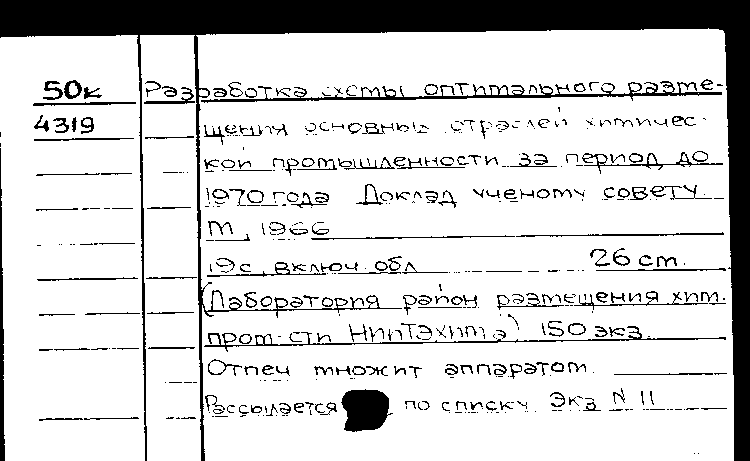 50к Разработка схемы оптимального разме-
4319 щения основных отраслей химичес-
кой промышленности за период до
1970 года Доклад ученому совету.
М, 1966
19с, включ. обл 26 см.
(Лаборатория район размещения хим.
пром-сти НИИТЭХИМа) 150 экз
Отпеч множит аппаратом.
Рассылается по списку Экз N 11